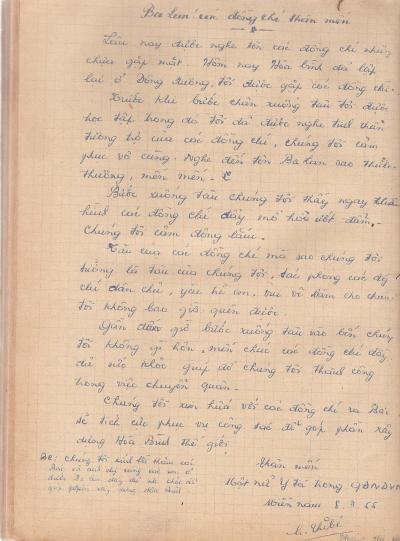 Ba Lan các đồng chí thân mến
Lâu nay được nghe tên các đồng chí nhưng
chưa gặp mặt. Hôm nay Hòa bình đã lập
lại ở Đông Dương, tôi được gặp các đồng chí.
Trước khi bước chân xuống tàu tôi được
học tập trong đó tôi đã được nghe tinh thần
tương trợ của các đồng chí, chúng tôi cảm
phục vô cùng. Nghe đến tên Ba Lan sao thân
thương, mến mến.
Bước xuống tàu chúng tôi thấy ngay
các đồng chí đây mồ hôi ướt đẫm.
Chúng tôi cảm động lắm.
Tàu của các đồng chí mà sao chúng tôi
tưởng là tàu của chúng tôi, tác phong các đ/c
dân chủ, yêu trẻ con, vui vẻ làm cho chúng
tôi không bao giờ quên được.
Gần đến giờ bước xuống tàu vào bến chúng
tôi không gì hơn, mến chúc các đồng chí đầy
đủ sức khỏe giúp đỡ chúng tôi thành công
trong việc chuyển quân.
Chúng tôi xin hứa với các đồng chí
sẽ tích cực phục vụ công tác để góp phần xây
dựng Hòa Bình thế giới
Thân mến
Một nữ Y tá trong QĐNDVN
Miền nam 8.3.55
Chúng tôi